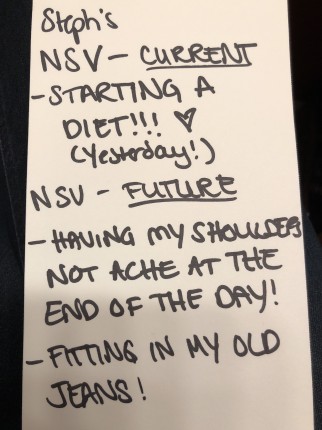 Steph's
NSV - CURRENT
- STARTING A
DIET!!! ♡
(Yesterday!)
NSV - FUTURE
- HAVING MY SHOULDERS
NOT ACHE AT THE
END OF THE DAY!
- FITTING IN MY OLD
JEANS!